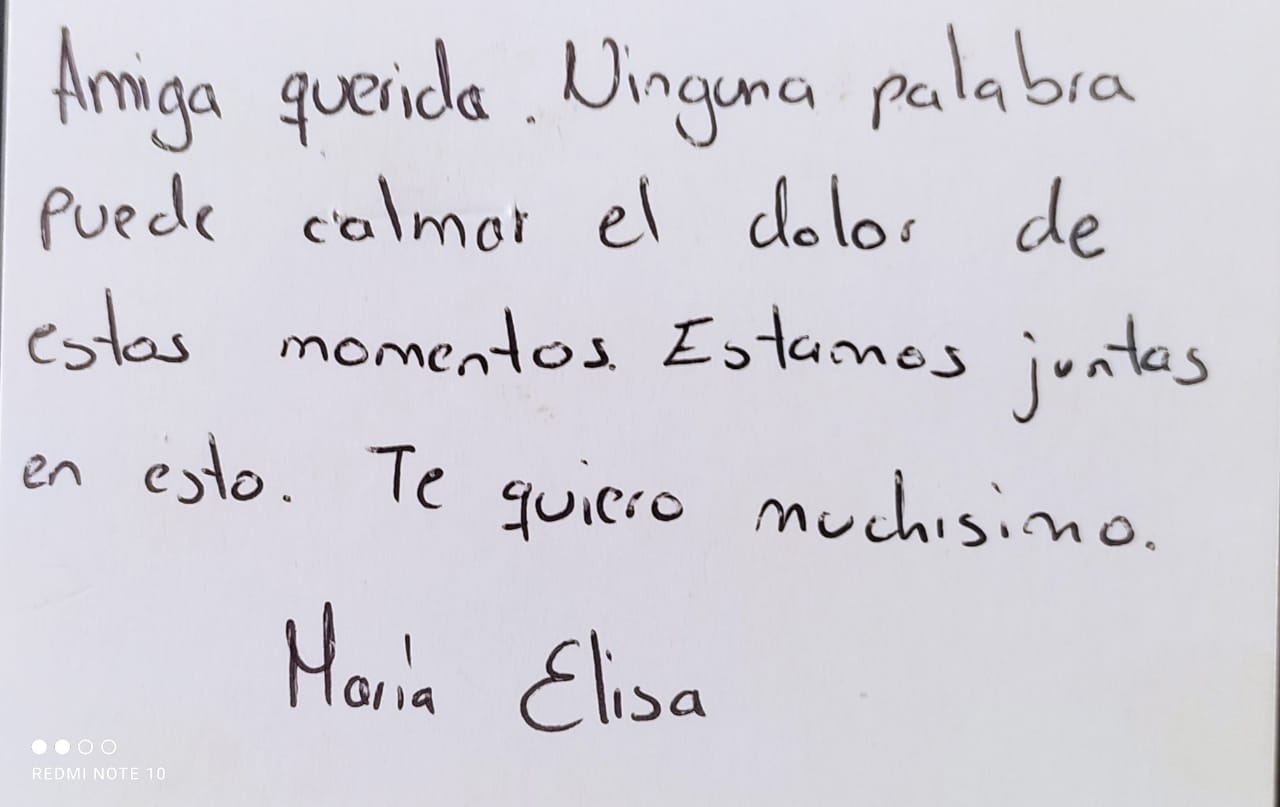 Amiga querida. Ninguna palabra
puede calmar el dolor de
estos momentos. Estamos juntas
en esto. Te quiero muchisimo.
María Elisa
REDMI NOTE 10